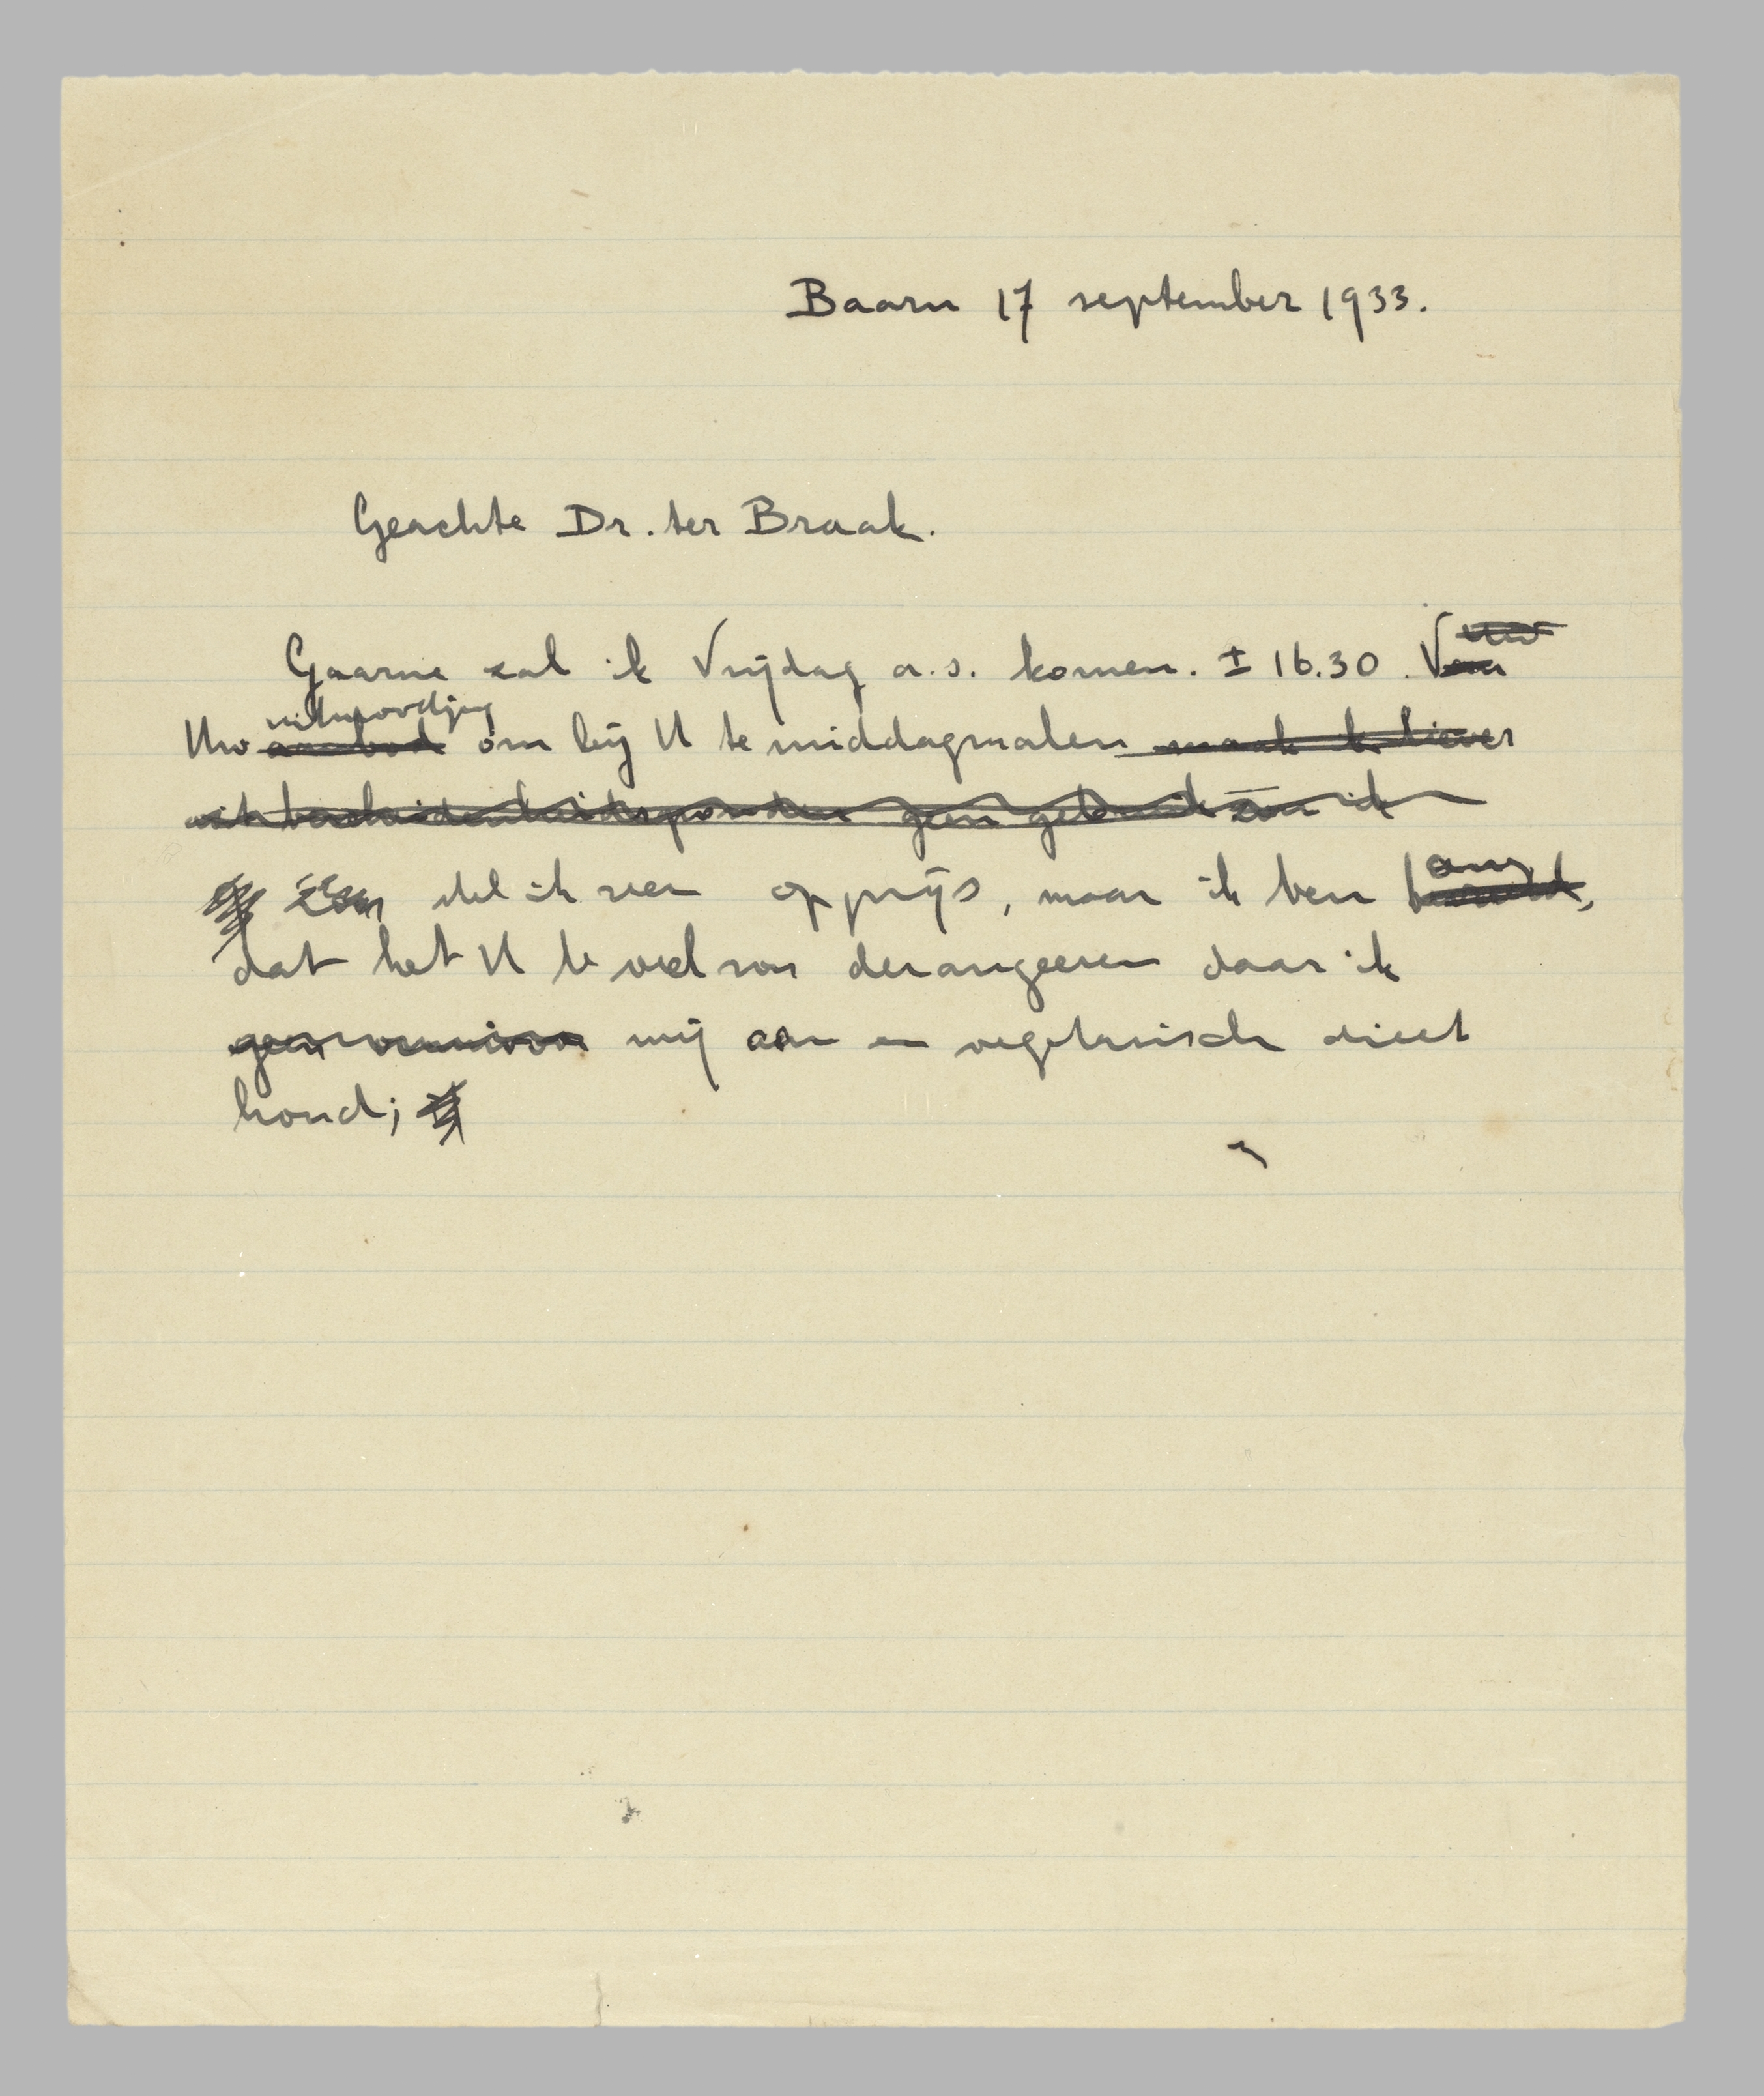 Baarn 17 september 1933.
Geachte Dr. ter Braak.
Gaarne zal ik Vrijdag a.s. komen. ± 16.30.
uitnoodiging
Uw aanbod om bij U te middagmalen maak ik liever
uit bescheidenheidsgronden geen gebruik ik
stel ik zeer op prijs, maar ik ben bang
dat het U te veel zou derangeeren daar ik
mij aan een vegetarisch dieet
houd;